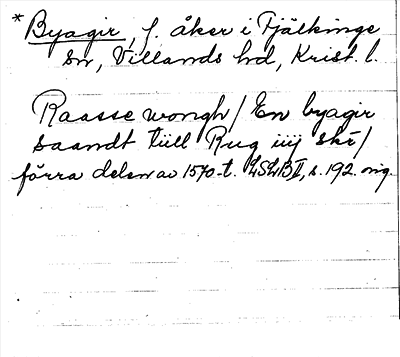 * Byagir, f. åker i Fjälkinge
sn, Villands hd, Krist. l.
Raasse wongh / En byagir
saandt tüll Rug iiij skr /
förra delen av 1570-t. LSLB II, s. 192. orig.